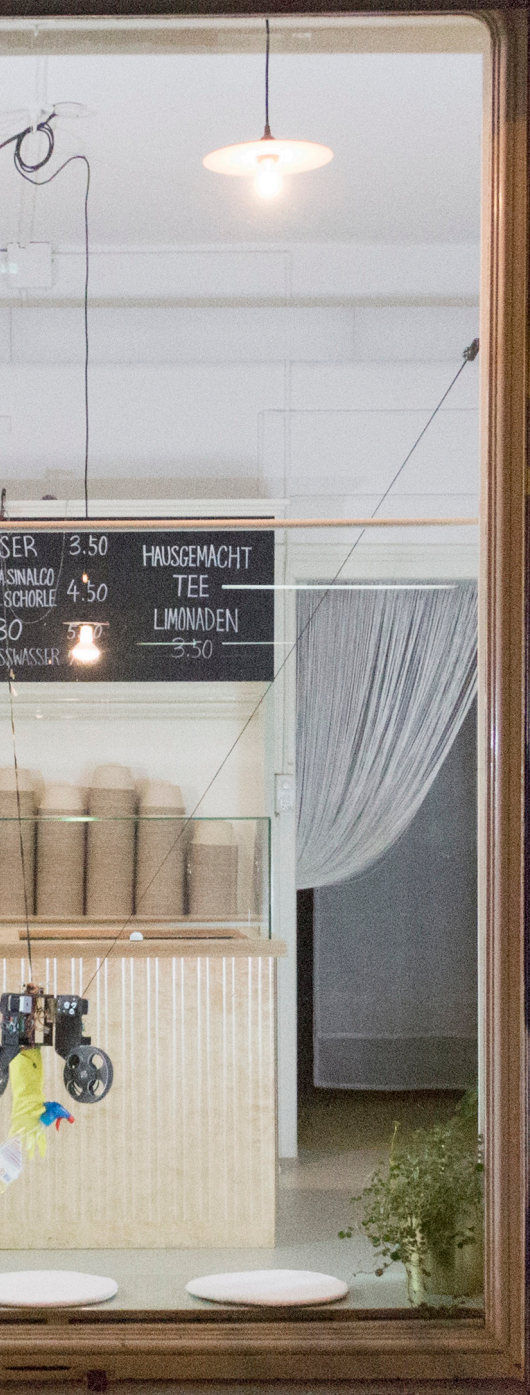 SER 3.50
ASINALCO
SCHORLE 4.50
30
SSWASSER
HAUSGEMACHT
TEE
LIMONADEN
3.50